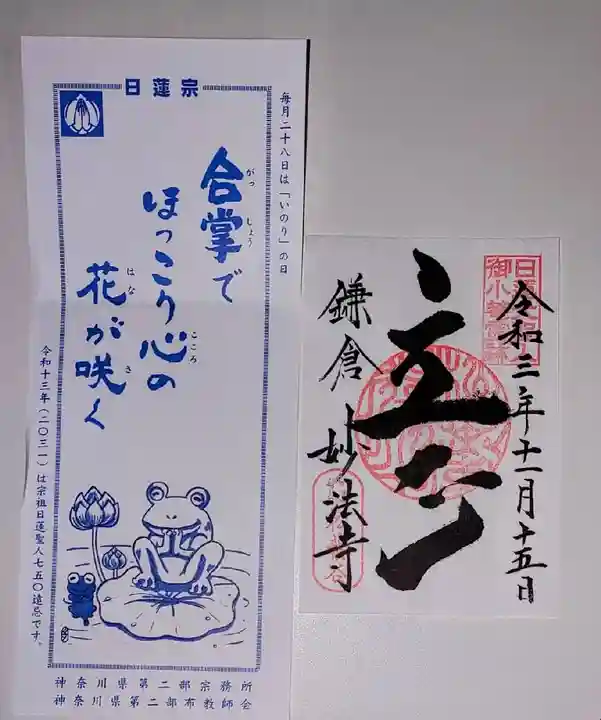 日蓮宗
毎月二十八日は「いのり」の日
合掌で
ほっこり心の
花が咲く
がっ しょう
こころ
はな さ
令和十三年(二〇三一)は宗祖日蓮聖人七五〇遠忌です。
神奈川県第二部宗務所
神奈川県第二部布教師会
令和三年十一月十五日
鎌倉 妙法寺